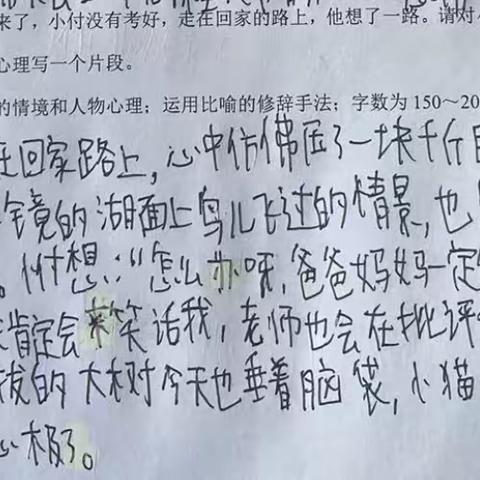 来了，小付没有考好，走在回家的路上，他想了一路。请对
心理写一个片段。
的情境和人物心理；运用比喻的修辞手法；字数为 150～20
回家路上，心中仿佛压了一块千斤
镜的湖面上鸟儿飞过的情景，也
。小付想：“怎么办呀，爸爸妈妈一定
肯定会来笑话我，老师也会在批评
拔的大树今天也垂着脑袋，小猫
心极了。